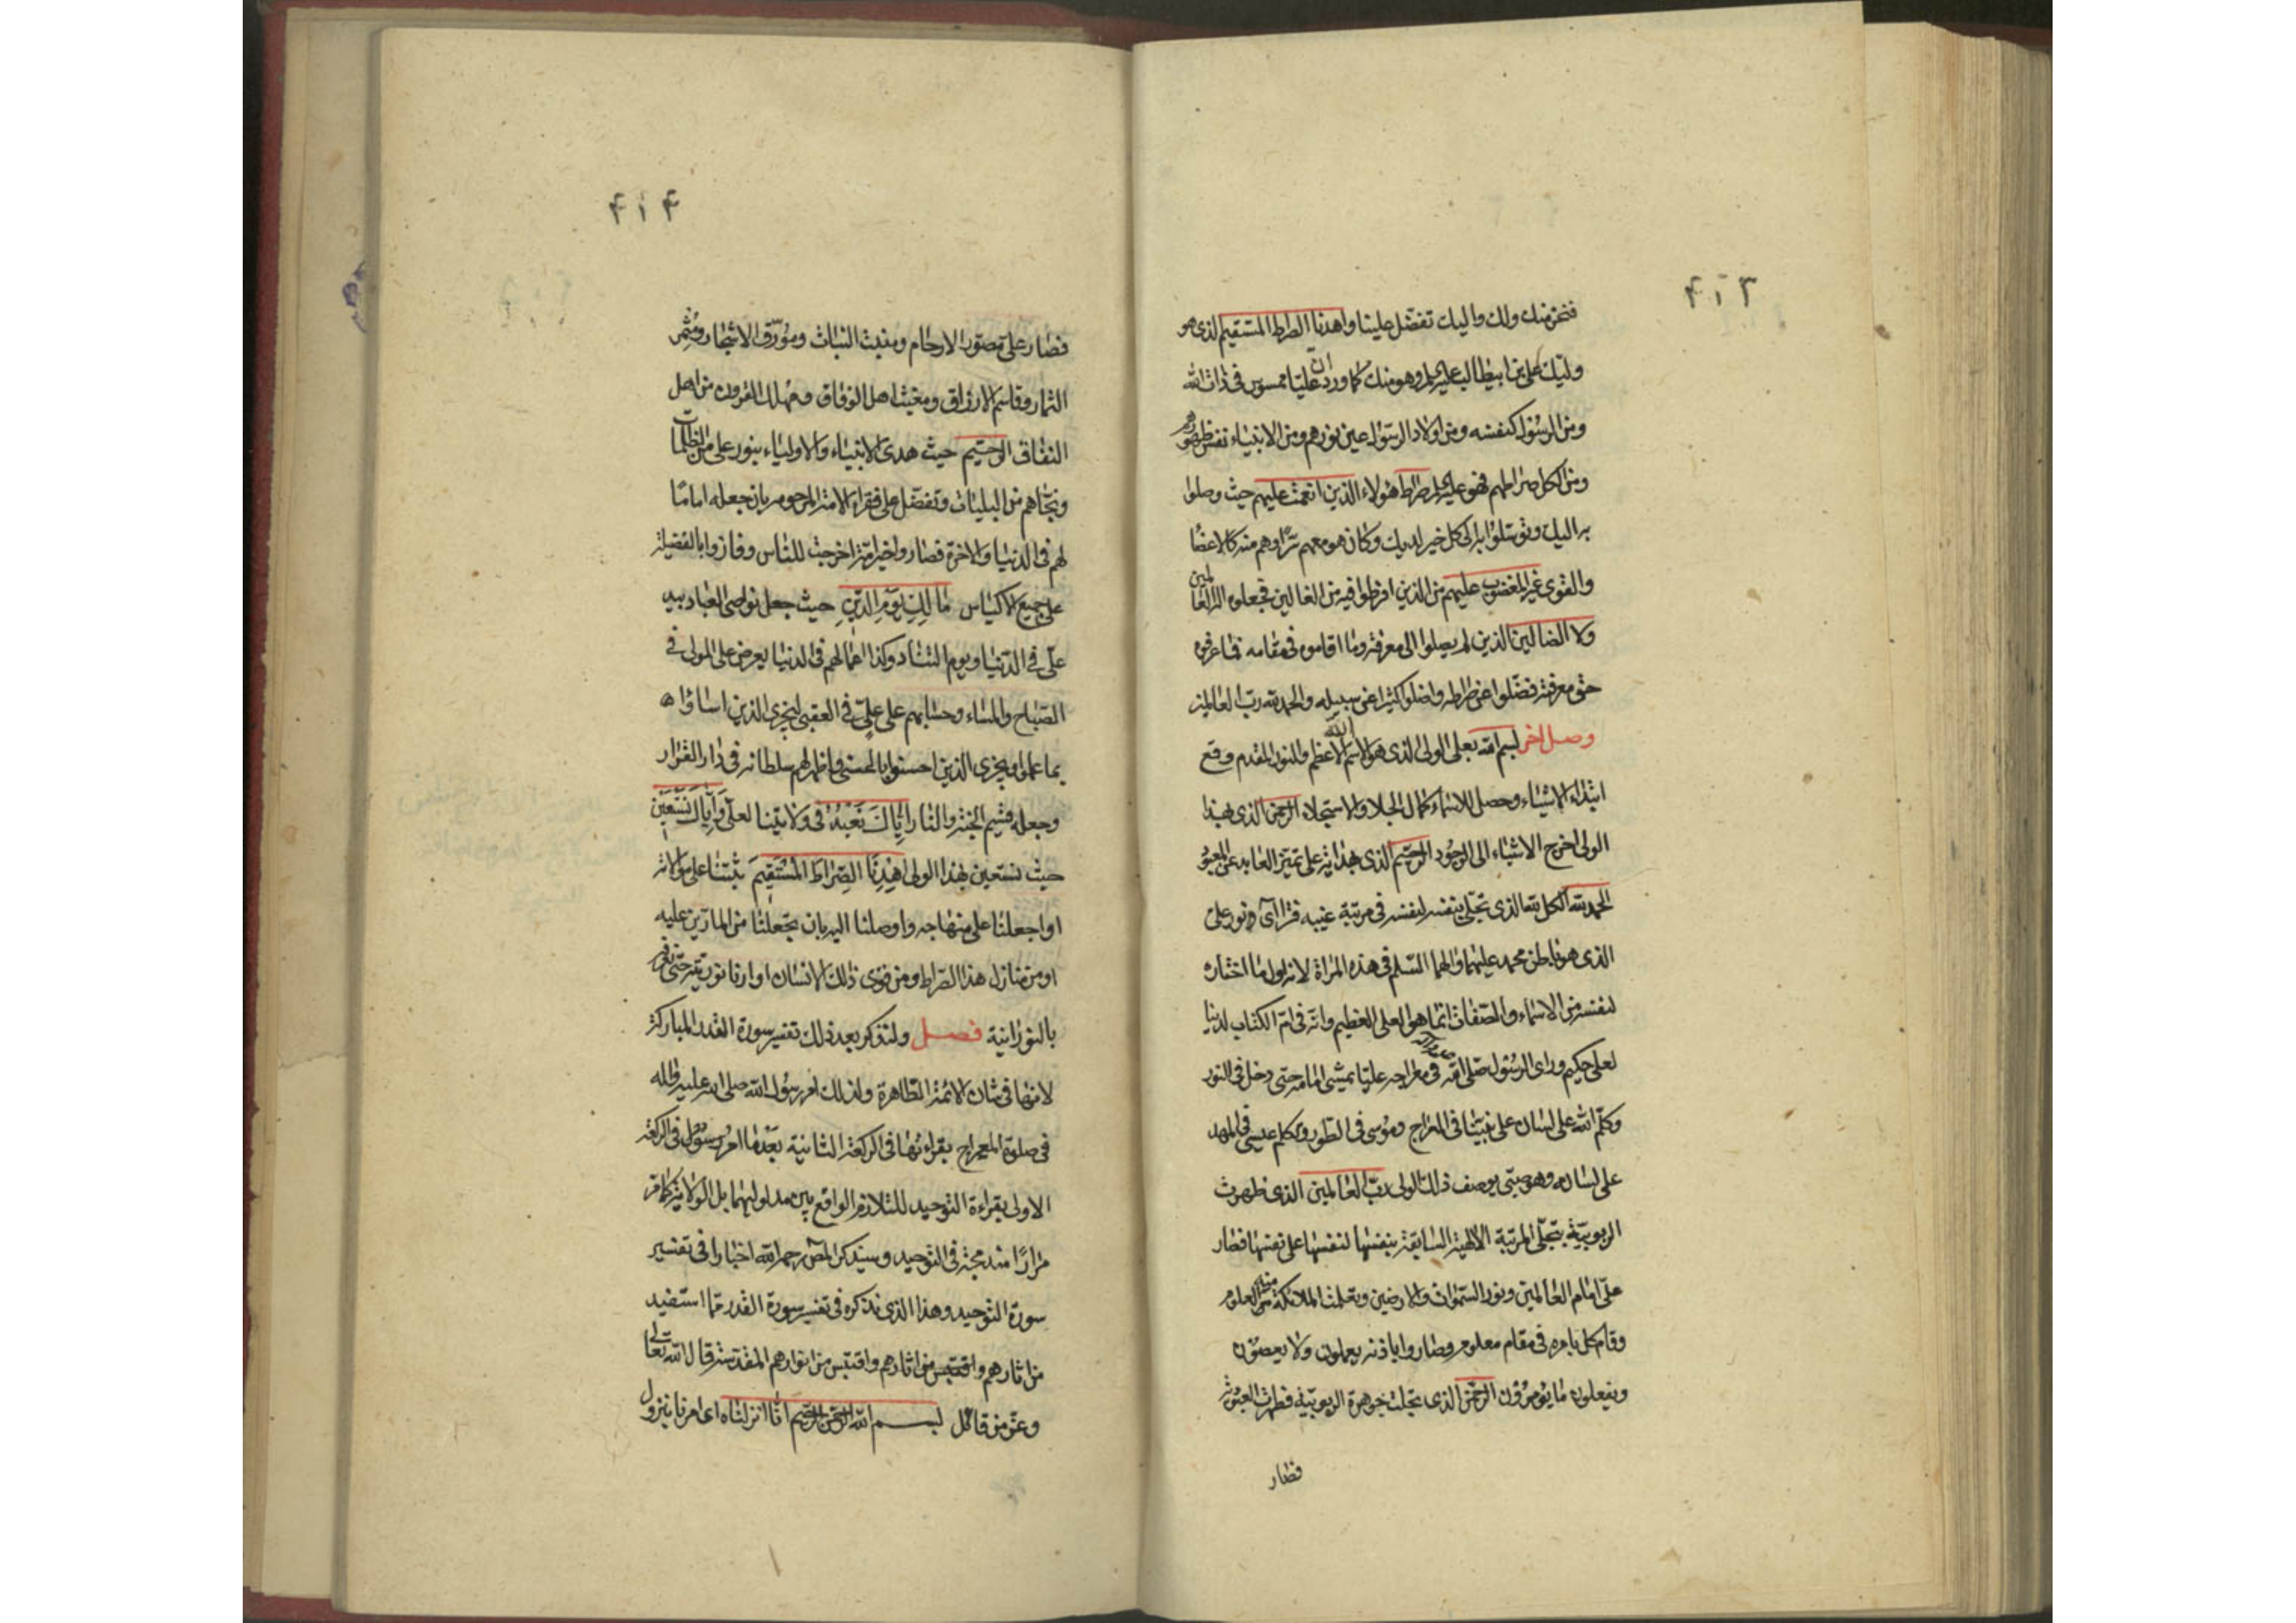 ۴۱۳
فنحن منك ولك واليك تفضّل علينا واهدنا الصراط المستقيم الذى هو
وليّك على بن ابيطالب عليه السلم وهو منك كما ورد ان عليّا ممسوس فى ذات الله
ومن الرسول كنفسه ومن اولاد الرسول عين نورهم ومن الانبياء نفس ظهورهم
ومن الكل صراطهم فهو عليه السلم صراط هؤلاء الذين انعمت عليهم حيث وصلوا
به اليك وتوسّلوا به الى كل خير لديك وكان هو معهم سرّا وهم منه كالاعضا
والقوى غير المغضوب عليهم من الذين افرطوا فيه من الغالين فجعلوه اله العالمين
ولا الضالين الذين لم يصلوا الى معرفته وما اقاموه فى مقامه فما عرفوه
حق معرفته فضّلوا عن صراطه واضلوا كثيرا عن سبيله والحمد لله ربّ العالمين
وصل اخر بسم الله بعلى الولى الذى هو الاسم الله الاعظم والنور المقدم وقع
ابتداء الاشياء وحصل للاسماء كمال الجلا والاستجلاء الرحمن الذى بهذا
الولى اخرج الاشياء الى الوجود الرحيم الذى بهدايته على تميّز العابد عن المعبود
الحمد لله الكل لله الذى تجلّى بنفسه لنفسه فى مرتبة غيبه فترااى نور على
الذى هو باطن محمد عليهما والهما السّلم فى هذه المراة لانه اول ما اختاره
لنفسه من الاسماء والصفات انما هو العلى العظيم وانّه فى امّ الكتاب لدينا
لعلى حكيم وراى الرسول صلى الله عليه واله فى معراجه عليّا يمشى امامه حتى دخل فى النور
وكلّم الله على لسان على نبيّنا فى المعراج وموسى فى الطور وتكلم عيسى فى المهد
على لسانه وهو صبّى بوصف ذلك الولى ربّ العالمين الذى ظهرت
الربوبيّة بتجلّى المرتبة الالهية السابقة بنفسها لنفسها على نفسها فصار
علّى امام العالمين ونور السموات والارضين وتعلمت الملائكة منه العلوم
وقام كل بامره فى مقام معلوم وصاروا باذنه يعملون ولا يعصون
ويفعلون ما يؤمرون الرحمن الذى تجلت جوهرة الربوبيّة فظهرت العبوديّة
فصار
۴۱۴
فصار على مصوّر الارحام ومنبت النبات ومورّق الاشجار ومثمر
الثمار وقاسم الارزاق ومغيث اهل الوفاق ومهلك القرون من اهل
النفاق الرحيم حيث هدى الانبياء والاولياء بنور على من الظلمات
ونجّاهم من البليات وتفضّل على فقراء الامة المرحومه بان جعله امامًا
لهم فى الدنيا والاخرة فصاروا خير امّة اخرجت للناس وفازوا بالفضيلة
على جميع الاكياس مالك يوم الدين حيث جعل نواصى العباد بيد
علّى فى الدّنيا ويوم التناد وكذا اعمالهم فى الدنيا يعرض على المولى فى
الصّباح والمساء وحسابهم على علىّ فى العقبى ليجزى الذين اساؤا
بما عملوا ويجزى الذين احسنوا بالحسنى واظهر لهم سلطانه فى دار القرار
وجعله قسيم الجنة والنار ايّاك نعبد فى ولايتنا لعلى وايّاك نستعين
حيث نستعين بهذا الولى اهدنا الصراط المستقيم ثبّتنا على موالاته
او اجعلنا على منهاجه واوصلنا اليه بان تجعلنا من المارّين عليه
او من منازل هذا الصراط ومن قوى ذلك الانسان او ارنا نوريّته حتى نقر
بالنورانية فصل ولنذكر بعد ذلك تفسير سورة القدر المباركة
لانها فى شان الائمة الطاهرة ولذلك امر رسول الله صلى الله عليه واله
فى صلوة المعراج بقراءتها فى الركعة الثانية بعد ما امر رسول فى الركعة
الاولى بقراءة التوحيد للتلازم الواقع بين مدلوليهما بل الولاية كما مر
مرارًا مندمجة فى التوحيد وسيذكر المص رحمه الله اخبارا فى تفسير
سورة التوحيد وهذا الذى نذكره فى تفسير سورة القدر مما استفيد
من اثارهم واقتبس من انوارهم المقدسة قال الله تعالى
وعزّ من قائل بسم الله الرحمن الرحيم انّا انزلناه اى امرنا بنزول